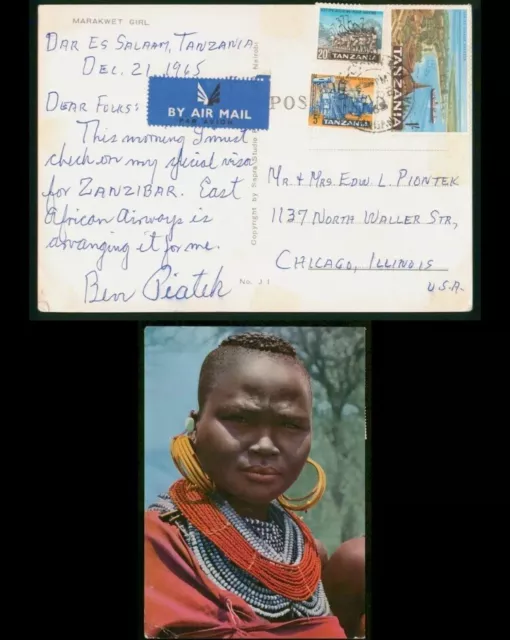 MARAKWET GIRL
DAR ES SALAAM, TANZANIA
DEC. 21, 1965
DEAR FOLKS:
This morning I must
check on my special visa
for ZANZIBAR. East
African Airways is
arranging it for me.
Ben Piatek
BY AIR MAIL
PAR AVION
POS
Copyright by Sapra Studio
Nairobi
No. J 1
20
TANZANIA
5
TANZANIA
TANZANIA
MR. & MRS. EDW. L. PIONTEK
1137 NORTH WALLER STR,
CHICAGO, ILLINOIS
U.S.A.